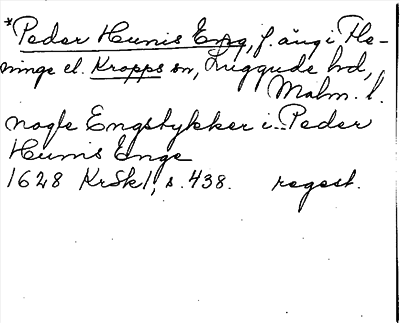 *Peder Hunis Eng, f. äng i Fle-
ninge el. Kropps sn, Luggude hd,
Malm. l.
nogle Engstykker i Peder
Hunis Enge
1628 KrSkl, s. 438. regest.